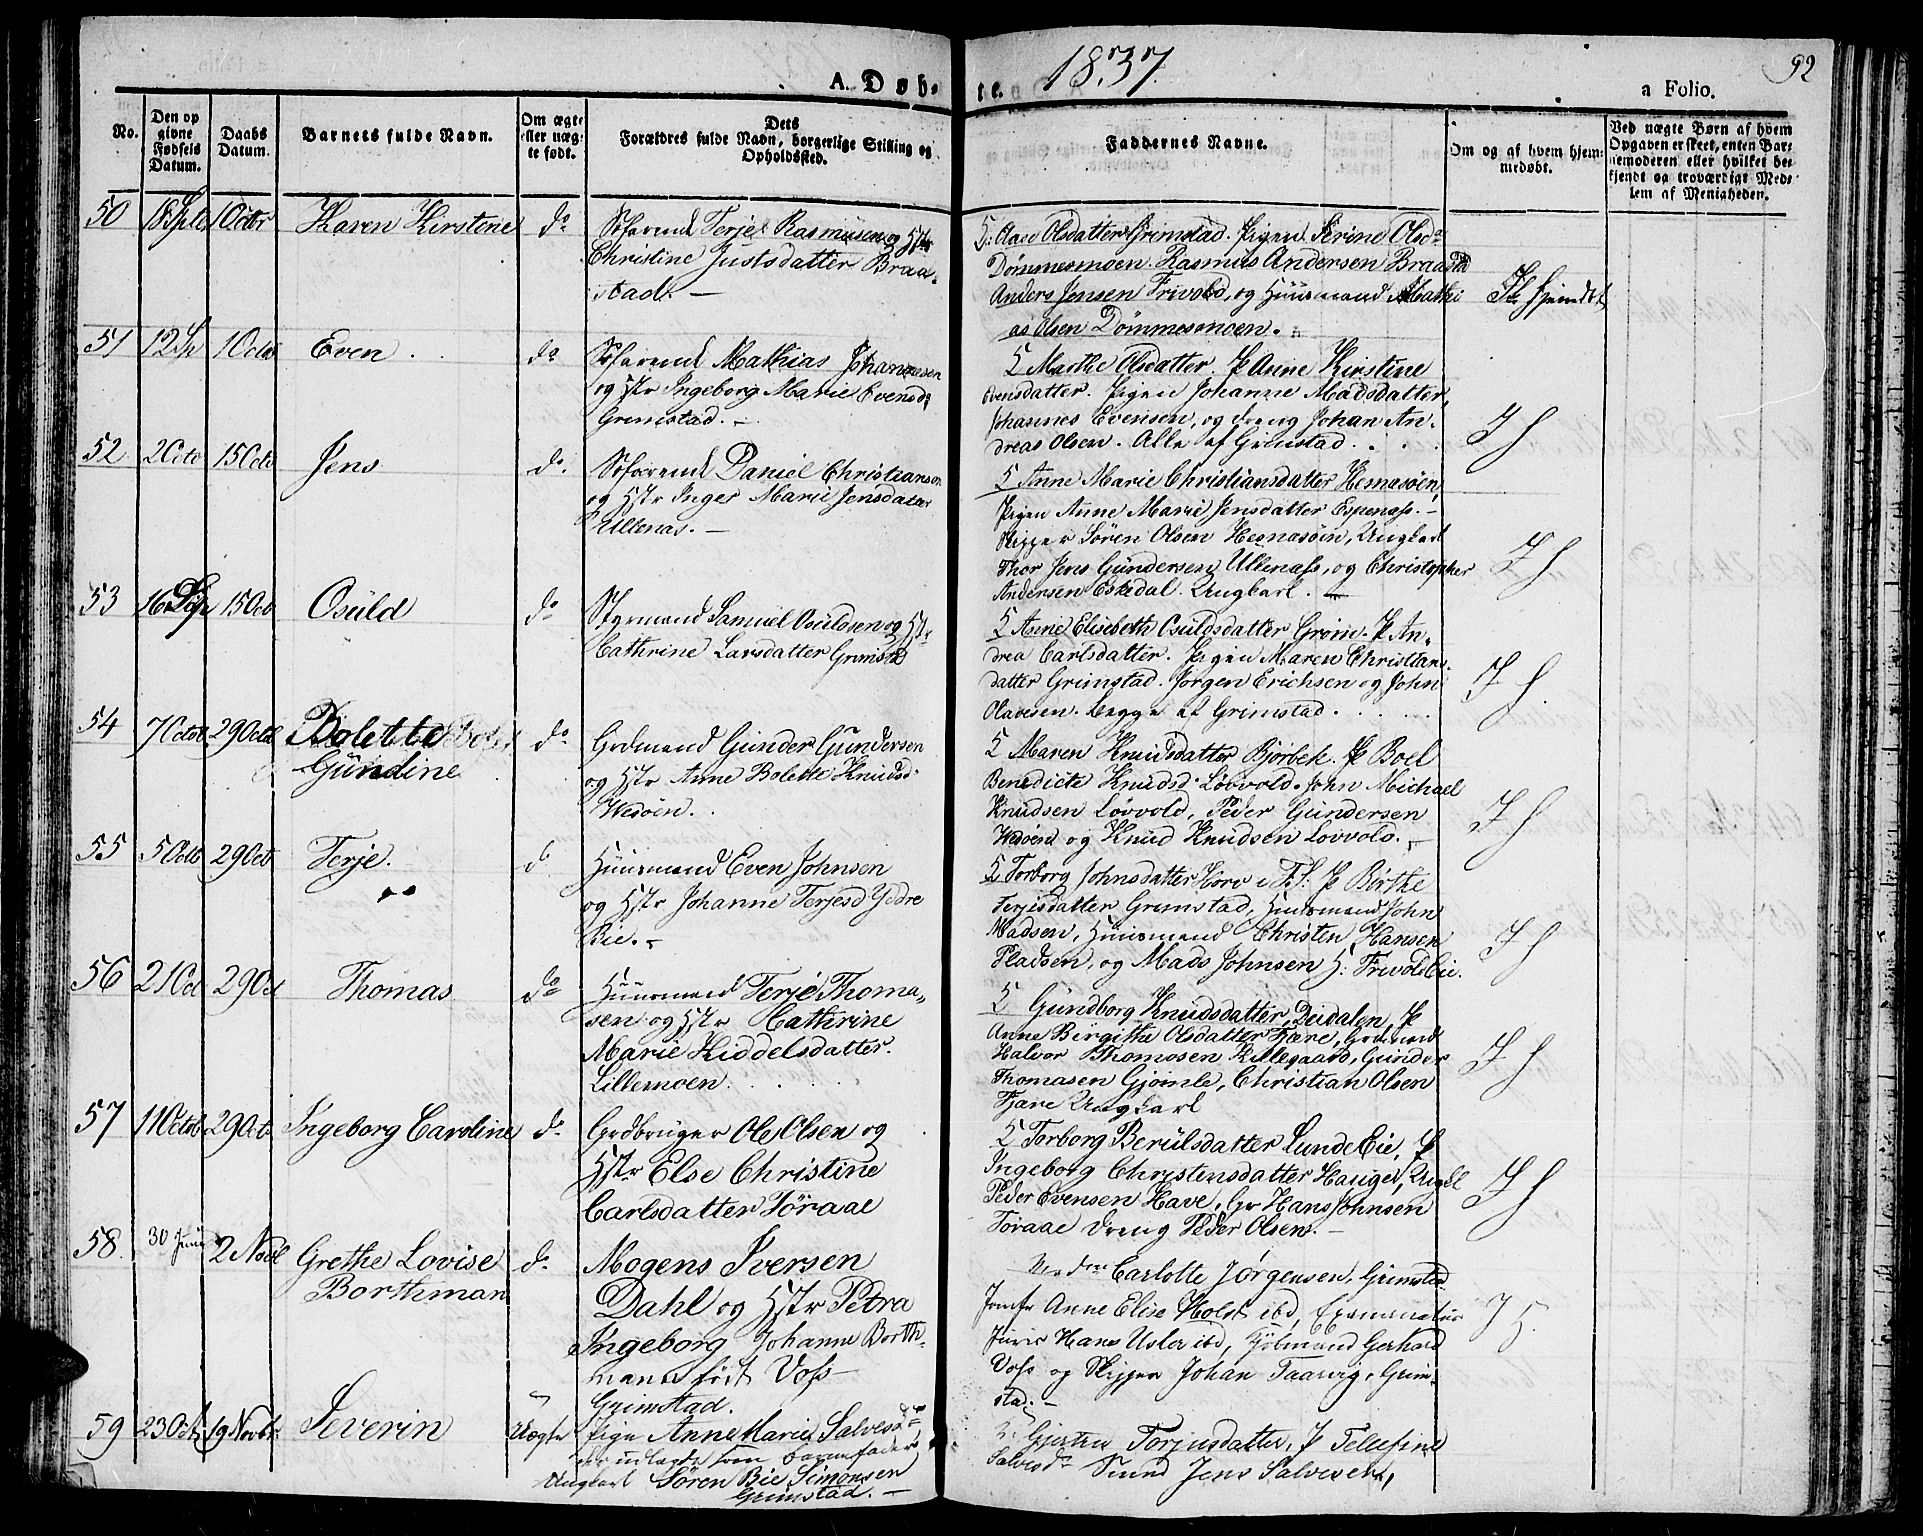 1837.
92
A. Døbte.
a Folio.
No.
Den opgivne Fødsels Datum.
Daabs Datum.
Barnets fulde Navn.
Om ægte eller uægte født.
Dets Forældres fulde Navn, borgerlige Stilling og Opholdssted.
Faddernes Navne.
Om og af hvem hjemmedøbt.
Ved uægte Børn af hvem Opgaven er skeet, enten Barnemoderen eller hvilket bekjendt og troværdigt Medlem af Menigheden.
50
18 Spt
1 Octbr
Karen Kirstene
do
Søfarend Terje Rasmusen og Hstr
Christine Justsdatter Braa-
stad. —
H: Aase Olsdatter Grimstad. Pigen Serine Olsd
Dømmesmoen. Rasmus Andersen Braastd
Anders Jensen Frivold, og Huusmand Mathi
as Olsen Dømmesmoen.
51
12 Sp
1 Octb
Even
do
Søfarend Mathias Johannesen
og Hstr Ingeborg Marie Evensd
Grimstad. —
H Marthe Olsdatter. P Anne Kirstine
Evensdatter. Pigen Johanne Madsdatter,
Johannes Evensen, og dreng Johan An-
dreas Olsen. Alle af Grimstad.
52
2 Octo
15 Octo
Jens
do
Søfarend Daniel Christiansen
og Hstr Inger Marie Jensdatter
Ullenæs. —
H Anne Marie Christiansdatter Hesnæsöen,
Pigen Anne Marie Jensdatter Espenæss. —
Skipper Sören Olsen Hesnæsöin, Ungkarl
Thor Jens Gundersen Ullenæss, og Christopher
Andersen Eskedal. Ungkarl. —
53
16 Sept
15 Oct
Osuld
do
Styrmand Samuel Osuldsen og Hstr
Cathrine Larsdatter Grimstd
H Anne Elisebeth Osuldsdatter Gröm. P An-
drea Carlsdatter. Pigen Maren Christians-
datter Grimstad. Jörgen Erichsen og John
Olavesen. begge af Grimstad.
54
7 Octob
29 Octob
Bolette
Gundine
do
Grdmand Gunder Gundersen
og Hstr Anne Bolette Knudsd.
Wesöen.
H Maren Knudsdatter Bjorbek. P Boel
Benedicte Knudsd. Lövvold. John Michael
Knudsen Lövvold, Peder Gundersen
Wesöen og Knud Knudsen Lovvold. —
55
5 Octb
29 Octb
Terje.
do
Huusmand Even Johnsen
og Hstr Johanne Terjesd Ydre
Bie. —
H Torborg Johnsdatter Horv i F.S. P Börthe
Terjesdatter Grimstad, Huusmand John
Madsen, Huusmand Christen Hansen
Pladsen, og Mads Johnsen H: Frivold Eie.
56
21 Oct
29 Oct
Thomas
do
Huusmand Terje Thoma-
sen og Hstr Kathrine
Marie Kiddelsdatter.
Lillemoen.
H Gundborg Knudsdatter Deidalen, P
Anne Birgithe Olsdatter Fjære, Grdmand
Halvor Thomosen Killegaard, Gunder
Thomasen Gjömle, Christian Olsen
Fjære Ungkarl
57
11 Octob
29 Oct
Ingeborg Caroline
do
Grdbruger Ole Olsen og
Hstr Else Christine
Carlsdatter Töraae
H Torborg Berulsdatter Lunde Eie, P
Ingeborg Christensdatter Hauger, Ungkl
Peder Evensen Have, Gr Hans Johnsen
Toraae dreng Peder Olsen. —
58.
30 Juni
2 Novb
Grethe Lovise
Borthman
do
Mogens Iversen
Dahl og Hstr Petra
Ingeborg Johanne Borth-
mann født Voss
Grimstad.
Carlotte Jörgensen, Grimstad
Jomfr Anne Elise Holst ibd, Examinatus
Juris Hans Usler ibd, Kjöbmand Gerhard
Voss og Skipper Johan Taarvig, Grim-
stad. —
59
23 Oct
19 Novbr
Severin
Uægte
Pige Anne Marie Salvesd
der udlagde som Barnefader
Ungkarl Søren Bie Simonsen
Grimstad. —
H. Gjerten Torjusdatter, P Tellefine
Salvesd Svend Jens Salvesen,